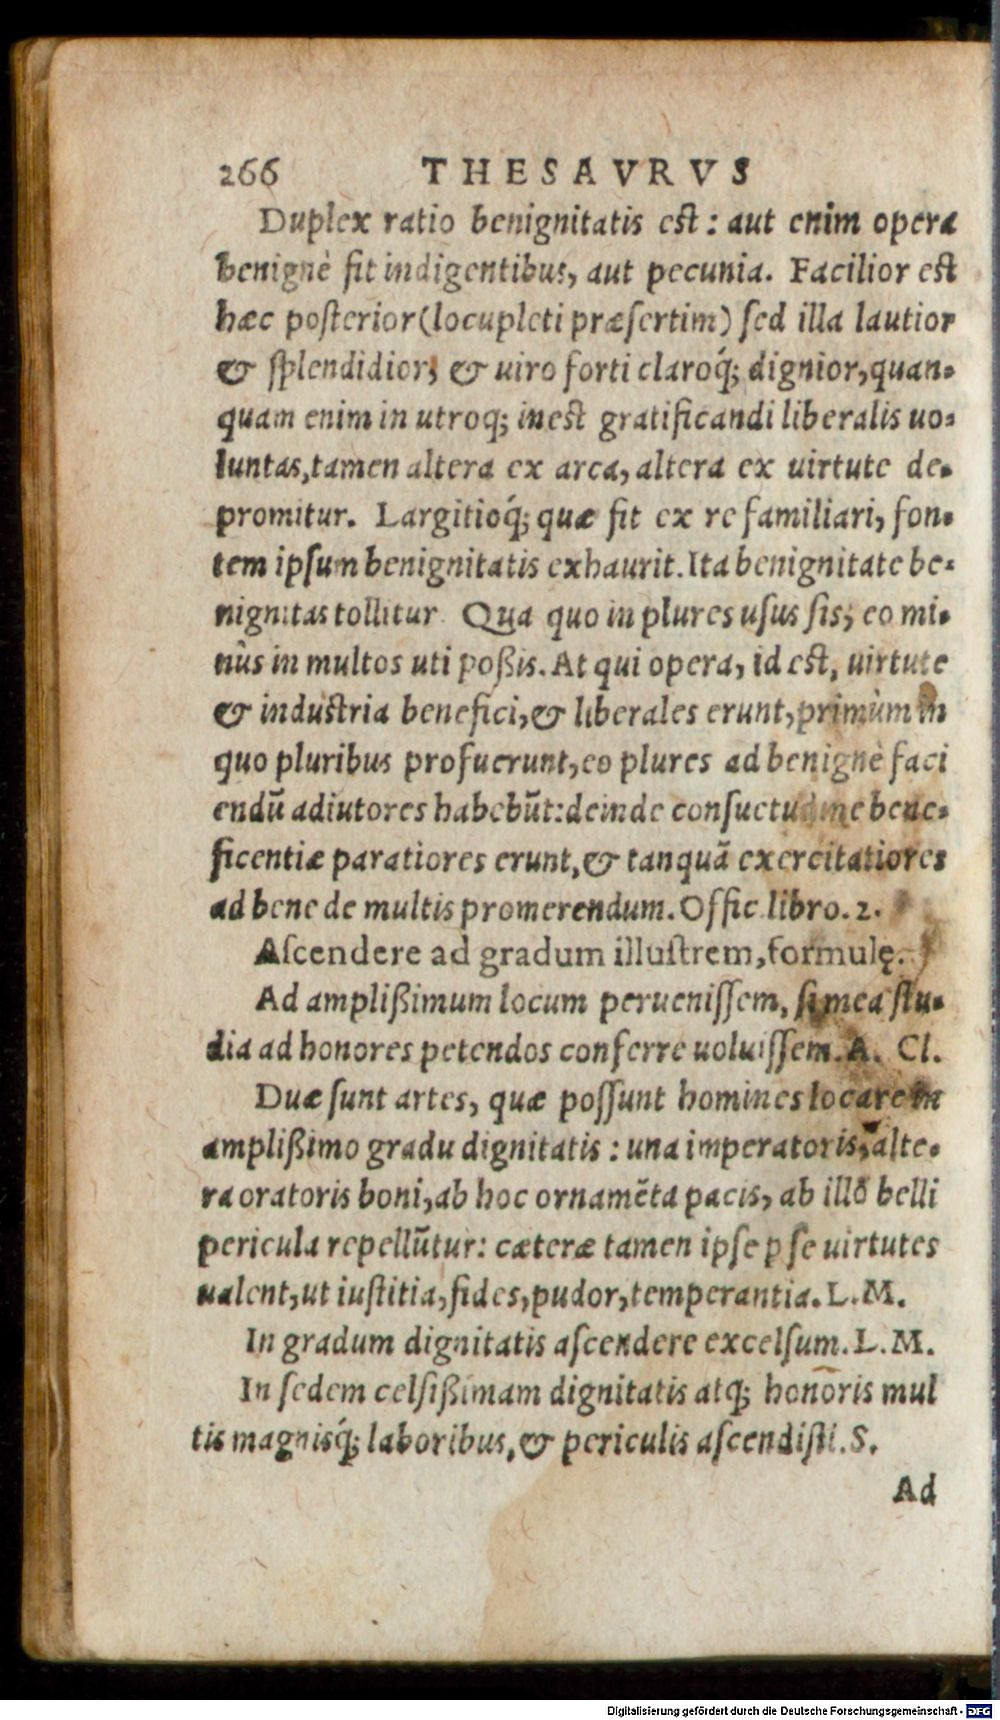 266 THESAVRVS
Duplex ratio benignitatis est: aut enim opera
benignè fit indigentibus, aut pecunia. Facilior est
hæc posterior (locupleti præsertim) sed illa lautior
& splendidior, & uiro forti claroq́; dignior, quan-
quam enim in utroq; inest gratificandi liberalis uo-
luntas, tamen altera ex arca, altera ex uirtute de-
promitur. Largitioq́; quæ fit ex re familiari, fon-
tem ipsum benignitatis exhaurit. Ita benignitate be-
nignitas tollitur. Qua quo in plures usus sis, eo mi-
nùs in multos uti poßis. At qui opera, id est, uirtute
& industria benefici, & liberales erunt, primùm in
quo pluribus profuerunt, eo plures ad benignè faci
endũ adiutores habebũt: deinde consuetudine bene-
ficentiæ paratiores erunt, & tanquã exercitatiores
ad bene de multis promerendum. Offic. libro. 2.
Ascendere ad gradum illustrem, formulę.
Ad amplißimum locum peruenissem, si mea stu-
dia ad honores petendos conferre uoluissem. A. Cl.
Duæ sunt artes, quæ possunt homines locare in
amplißimo gradu dignitatis: una imperatoris, alte-
ra oratoris boni, ab hoc ornamẽta pacis, ab illo belli
pericula repellũtur: cæteræ tamen ipse ꝑ se uirtutes
ualent, ut iustitia, fides, pudor, temperantia. L. M.
In gradum dignitatis ascendere excelsum. L. M.
In sedem celsißimam dignitatis atq; honoris mul
tis magnisq́; laboribus, & periculis ascendisti. S.
Ad
Digitalisierung gefördert durch die Deutsche Forschungsgemeinschaft - DFG